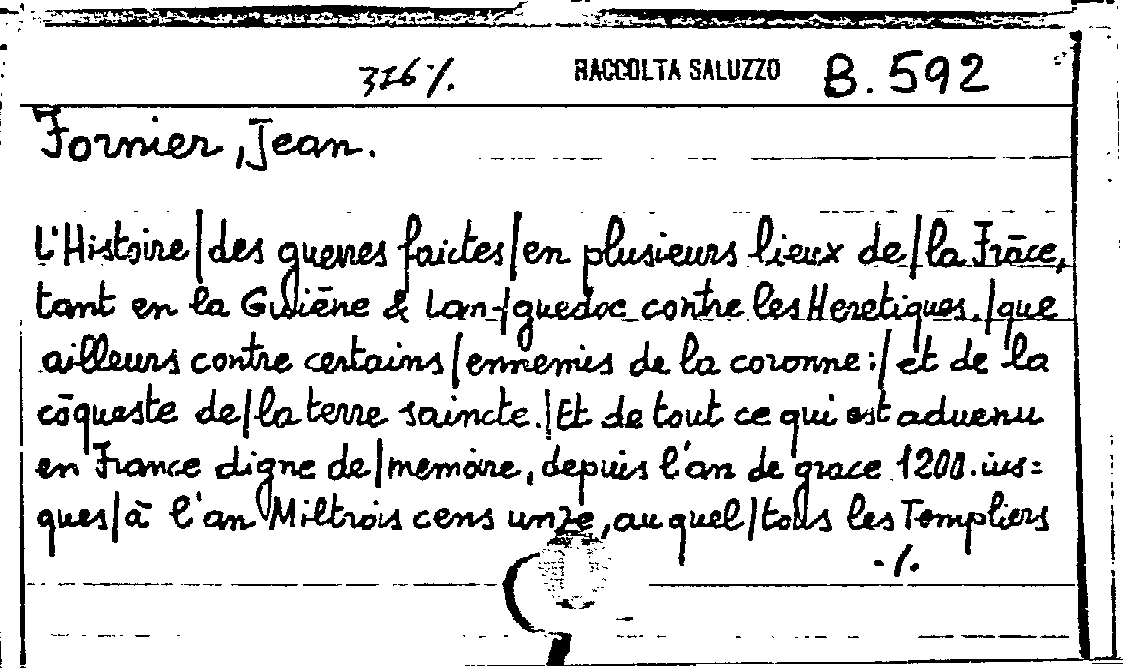 326·/. RACCOLTA SALUZZO B. 592
Fornier, Jean.
L'Histoire|des guerres faictes|en plusieurs lieux de|la Frāce,
tant en la Guiēne & Lan-|guedoc contre les Heretiques.|que
ailleurs contre certains|ennemis de la coronne:|et de la
cōqueste de|la terre saincte.|Et de tout ce qui est aduenu
en France digne de|memoire, depuis l'an de grace 1200.ius=
ques|à l'an Miltrois cens unze, au quel|tous les Templiers
·/.